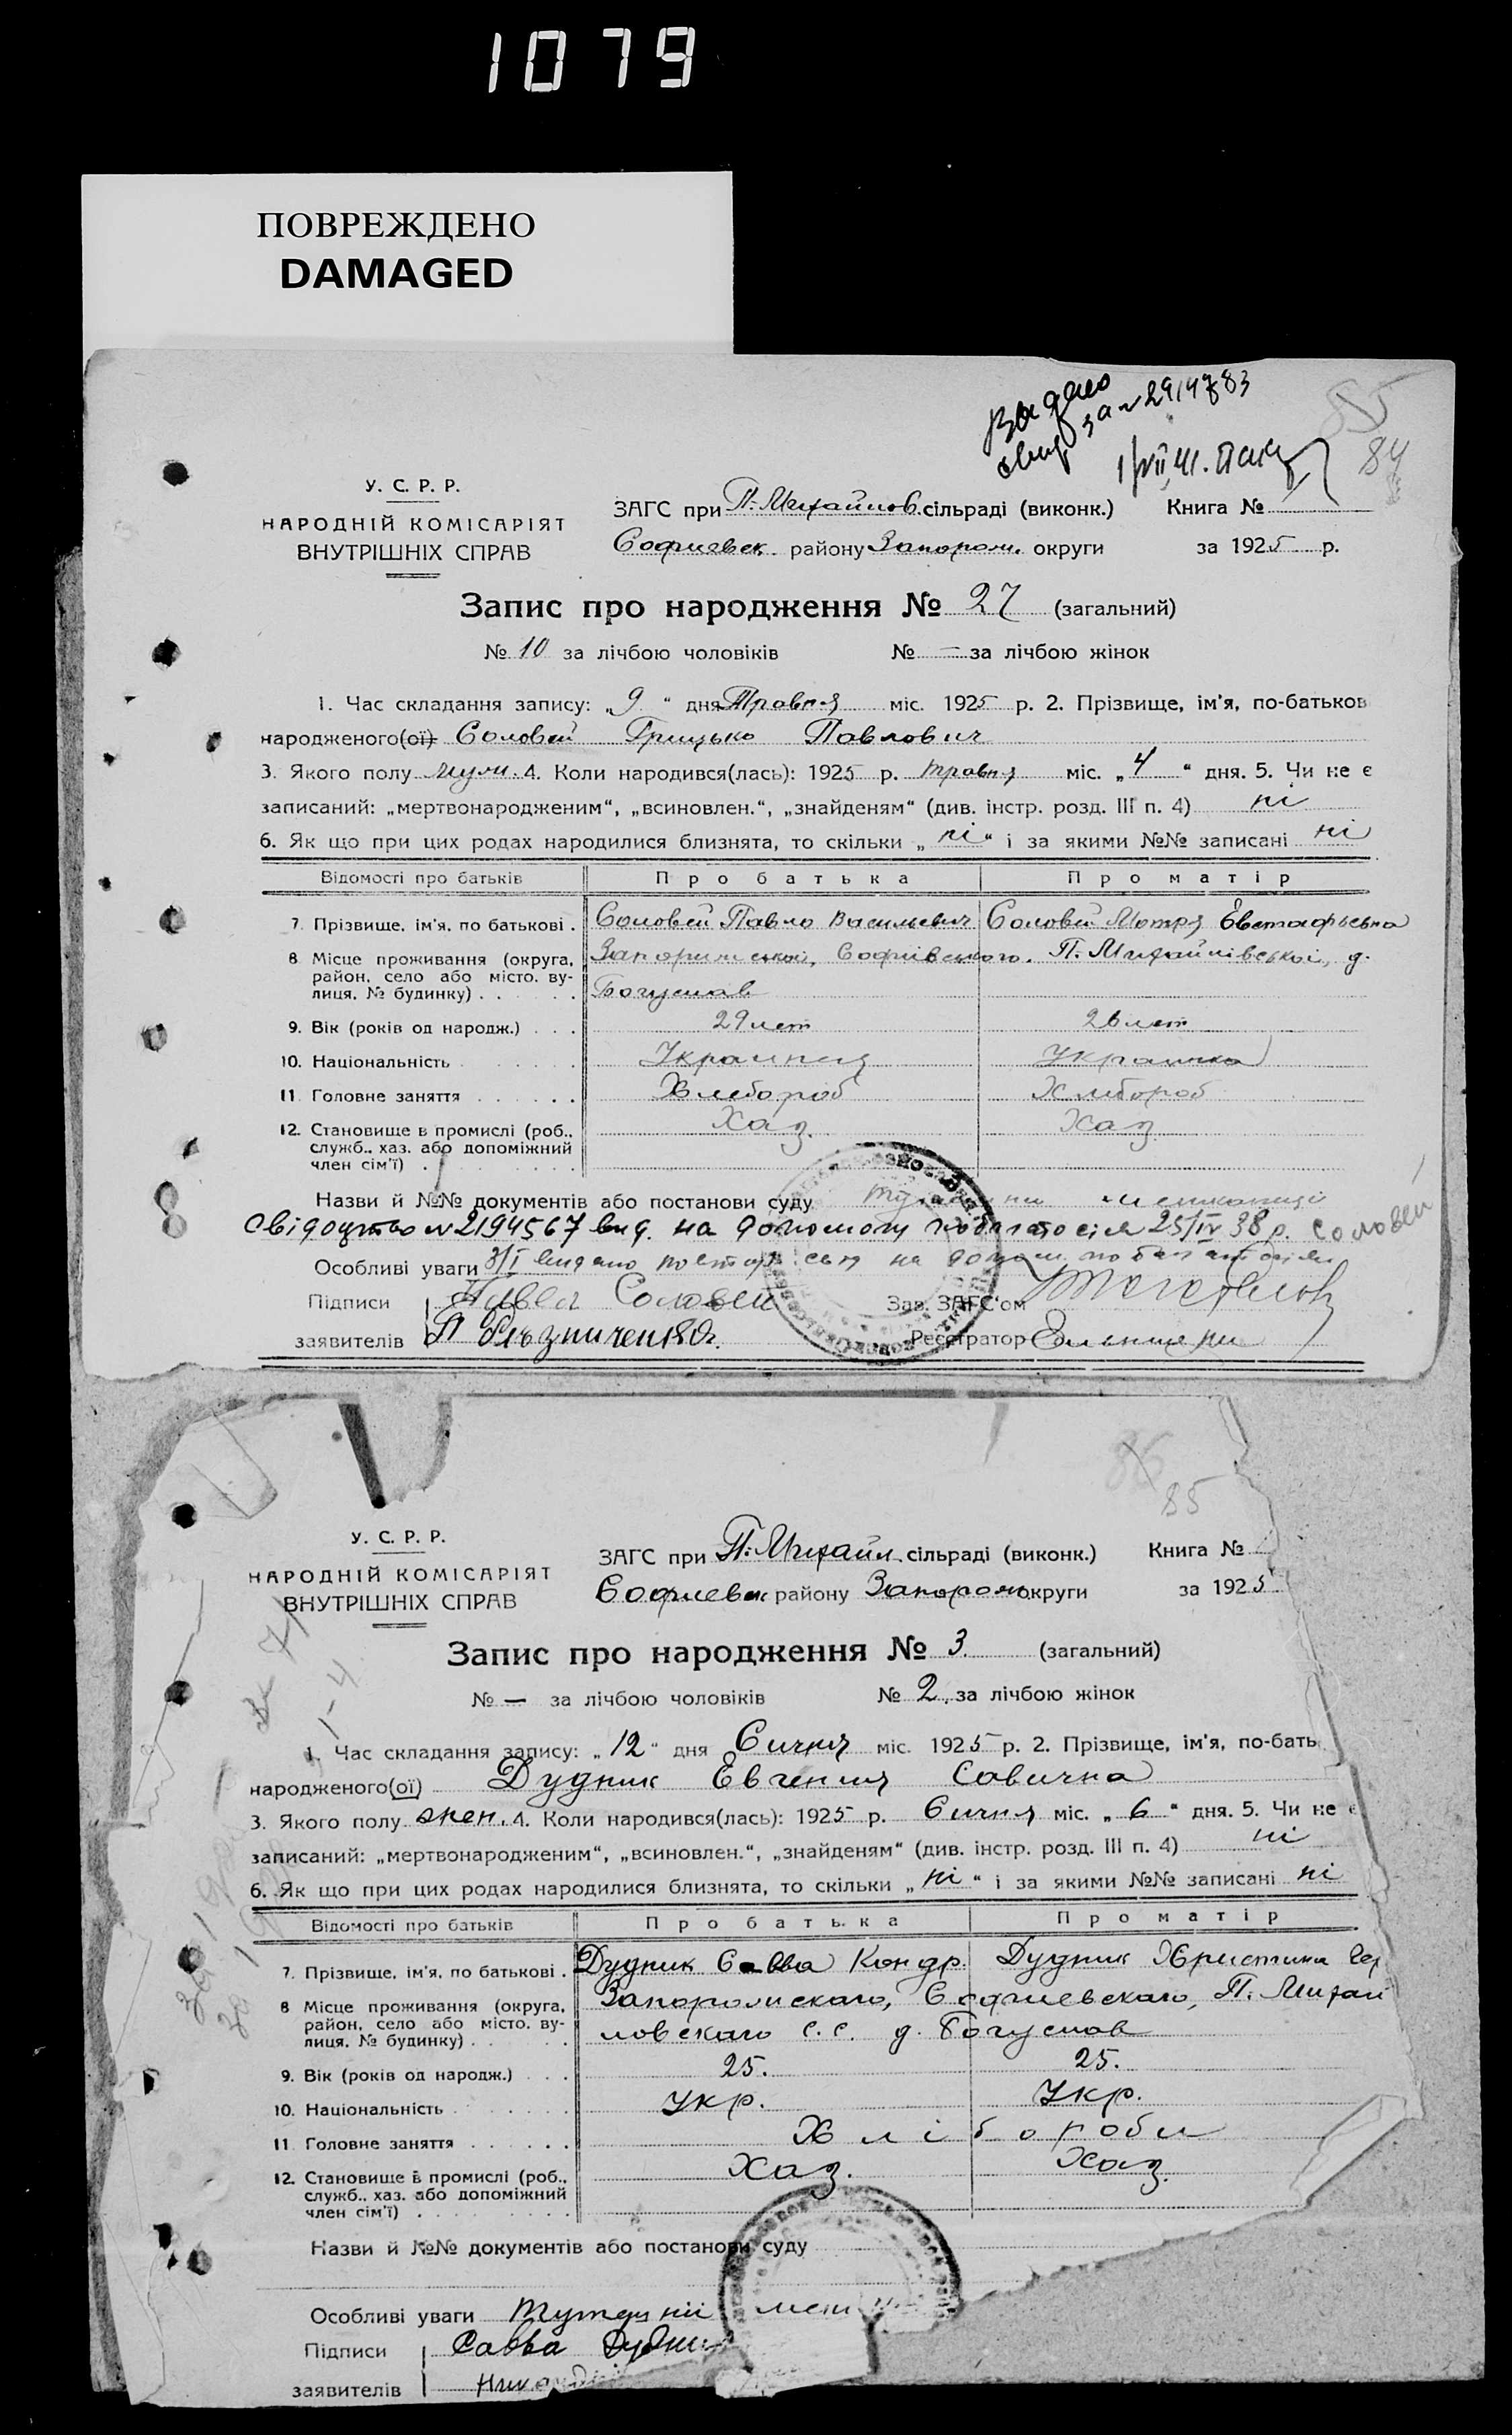 1079
ПОВРЕЖДЕНО
DAMAGED
Видано
свид за №
85
84
У. С. Р. Р.
НАРОДНІЙ КОМІСАРІЯТ
ВНУТРІШНІХ СПРАВ
ЗАГС при П. Михайлов. сільраді (виконк.) Книга №
Софиевск. району Запорож. округи за 1925 р.
Запис про народження № 27 (загальний)
№ 10 за лічбою чоловіків № — за лічбою жінок
1. Час складання запису: „9“ дня Травня міс. 1925 р. 2. Прізвище, ім'я, по-батьков
народженого(ої) Соловей Грицько Павлович
3. Якого полу муж. 4. Коли народився(лась): 1925 р. травня міс. „4“ дня. 5. Чи не є
записаний: „мертвонародженим“, „всиновлен.“, „знайденям“ (див. інстр. розд. III п. 4) ні
6. Як що при цих родах народилися близнята, то скільки „ні“ і за якими №№ записані ні
Відомості про батьків Про батька Про матір
7. Прізвище, ім'я, по батькові . Соловей Павло Васильевич Соловей Мотря Евстафьевна
8 Місце проживання (округа, район, село або місто, вулиця, № будинку) . . . Запорижської, Софиівського. П. Михайлівської, д.
Богуслав
9. Вік (років од народж.) . . . 29 лет 26 лет
10. Національність Украинец Украинка
11. Головне заняття Хлебороб Хлебороб
12. Становище в промислі (роб., Хаз. Хаз.
служб., хаз. або допоміжний
член сім'ї) .
Назви й №№ документів або постанови суду
Свідоцтво №2194567 вид. на допомогу по багатосім 25/IV 38 р. Соловей
Особливі уваги 3/I видано на
Підписи Павел Соловей Зав. ЗАГС'ом
заявителів П Реєстратор
85
У. С. Р. Р.
НАРОДНІЙ КОМІСАРІЯТ
ВНУТРІШНІХ СПРАВ
ЗАГС при П. Михайл. сільраді (виконк.) Книга №
Софиевск району Запорож. округи за 1925
Запис про народження № 3. (загальний)
№ — за лічбою чоловіків № 2. за лічбою жінок
1. Час складання запису: „12“ дня Сичня міс. 1925 р. 2. Прізвище, ім'я, по-бать
народженого(ої) Дудник Евгения Савична
3. Якого полу жен. 4. Коли народився(лась): 1925 р. Сичня міс. „6“ дня. 5. Чи не є
записаний: „мертвонародженим“, „всиновлен.“, „знайденям“ (див. інстр. розд. III п. 4) ні
6. Як що при цих родах народилися близнята, то скільки „ні“ і за якими №№ записані ні
Відомості про батьків Про батька Про матір
7. Прізвище, ім'я, по батькові . Дудник Савва Кондр. Дудник Христина
8 Місце проживання (округа, Запорожскаго, Софиевскаго, П. Михай
район, село або місто, ву-
лиця, № будинку) . . . ловскаго с.с. д. Богуслав
9. Вік (років од народж.) . . . 25. 25.
10. Національність Укр. Укр.
11. Головне заняття Хлібороби
12. Становище в промислі (роб., Хаз. Хаз.
служб., хаз. або допоміжний
член сім'ї) .
Назви й №№ документів або постанови суду
Особливі уваги
Підписи Савва Дудник
заявителів